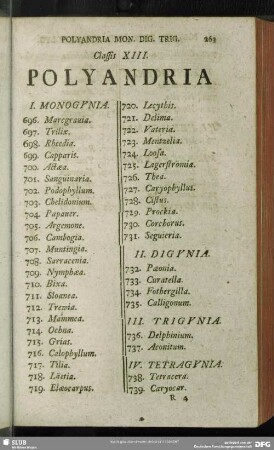 POLYANDRIA MON. DIG. TRIG. 263
Classis XIII.
POLYANDRIA
I. MONOGYNIÆ.
696. Marcgravia.
697. Trilix.
698. Rheedia.
699. Capparis.
700. Actæa.
701. Sanguinaria.
702. Podophyllum.
703. Chelidonium.
704. Papaver.
705. Argemone.
706. Cambogia.
707. Muntingia.
708. Sarracenia.
709. Nymphæa.
710. Bixa.
711. Sloanea.
712. Trewia.
713. Mammea.
714. Ochna.
715. Grias.
716. Calophyllum.
717. Tilia.
718. Läetia.
719. Elæocarpus.
720. Lecythis.
721. Delima.
722. Vateria.
723. Mentzelia.
724. Loosa.
725. Lagerströmia.
726. Thea.
727. Caryophyllus.
728. Cistus.
729. Prockia.
730. Corchorus.
731. Seguieria.
II. DIGYNIÆ
732. Pæonia.
733. Curatella.
734. Fothergilla.
735. Calligonum.
III. TRIGYNIÆ
736. Delphinium.
737. Aconitum.
IV. TETRAGYNIÆ
738. Tetracera.
739. Caryocar.
R 4
SLUB